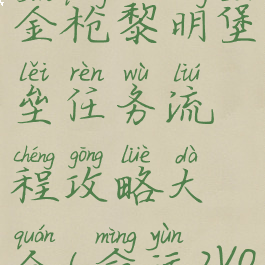 金枪黎明堡
lěi rèn wù liú
垒任务流
chéng gōng lüè dà
程攻略大
quán mìng yùn